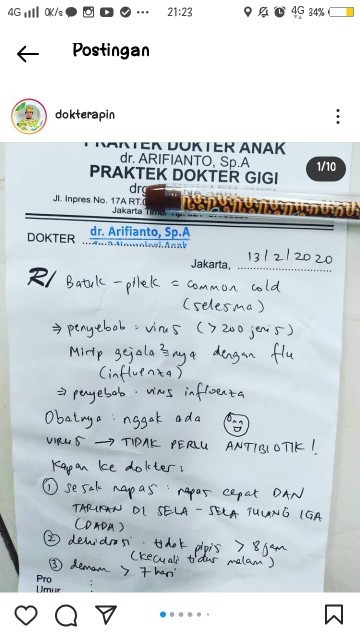 4G 0K/s ... 21:23 4G 34%
Postingan
dokterapin
1/10
PRAKTEK DOKTER ANAK
dr. ARIFIANTO, Sp.A
PRAKTEK DOKTER GIGI
drg
Jl. Inpres No. 17A RT.0
Jakarta
DOKTER dr. Arifianto, Sp.A
Jakarta, 13/2/2020
R/ Batuk - pilek = common cold
(selesma)
⇒ penyebab = virus (> 200 jenis)
Mirip gejala²nya dengan flu
(influenza)
⇒ penyebab = virus influenza
Obatnya : nggak ada
VIRUS → TIDAK PERLU ANTIBIOTIK!
Kapan ke dokter :
① sesak napas : napas cepat DAN
TARIKAN DI SELA - SELA TULANG IGA
(DADA)
② dehidrasi : tidak pipis > 8 jam
(kecuali tidur malam)
③ demam > 7 hari
Pro :
Umur